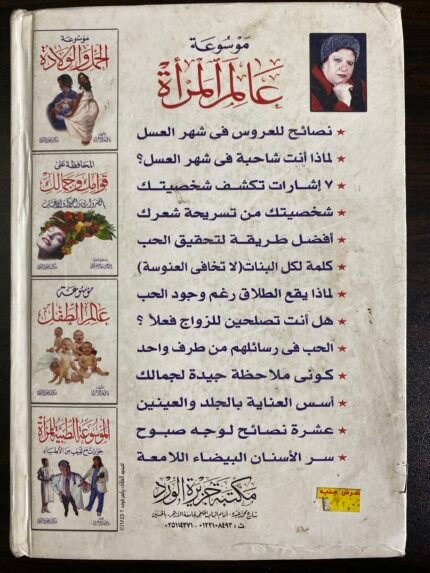 موسوعة
عالم المرأة
نصائح للعروس فى شهر العسل
لماذا أنت شاحبة فى شهر العسل؟
٧ إشارات تكشف شخصيتك
شخصيتك من تسريحة شعرك
أفضل طريقة لتحقيق الحب
كلمة لكل البنات (لا تخافى العنوسة)
لماذا يقع الطلاق رغم وجود الحب
هل أنت تصلحين للزواج فعلاً ؟
الحب فى رسائلهم من طرف واحد
كونى ملاحظة جيدة لجمالك
أسس العناية بالجلد والعينين
عشرة نصائح لوجه صبوح
سر الأسنان البيضاء اللامعة
مكتبة جزيرة الورد
موسوعة
الحمل والولادة
المحافظة على
قوامك وجمالك
موسوعة
عالم الطفل
الموسوعة الطبية للمرأة